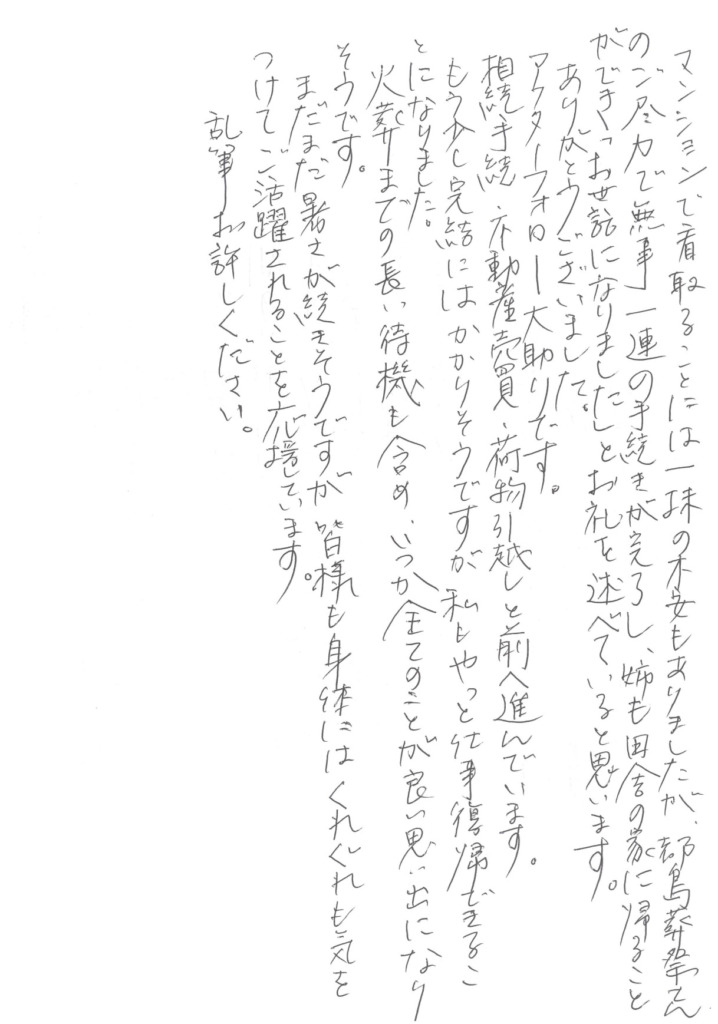 マンションで看取ることには一抹の不安もありましたが、都島葬祭さん
のご尽力で無事一連の手続きが完了し、姉も田舎の家に帰ること
ができ「お世話になりました」とお礼を述べていると思います。
ありがとうございました。
アフターフォロー大助りです。
相続手続、不動産売買、荷物引越しと前へ進んでいます。
もう少し完結にはかかりそうですが 私もやっと仕事復帰できるこ
とになりました。
火葬までの長い待機も含め、いつか全てのことが良い思い出になり
そうです。
まだまだ暑さが続きそうですが 皆様も身体にはくれぐれも気を
つけてご活躍されることを応援しています。
乱筆お許しください。